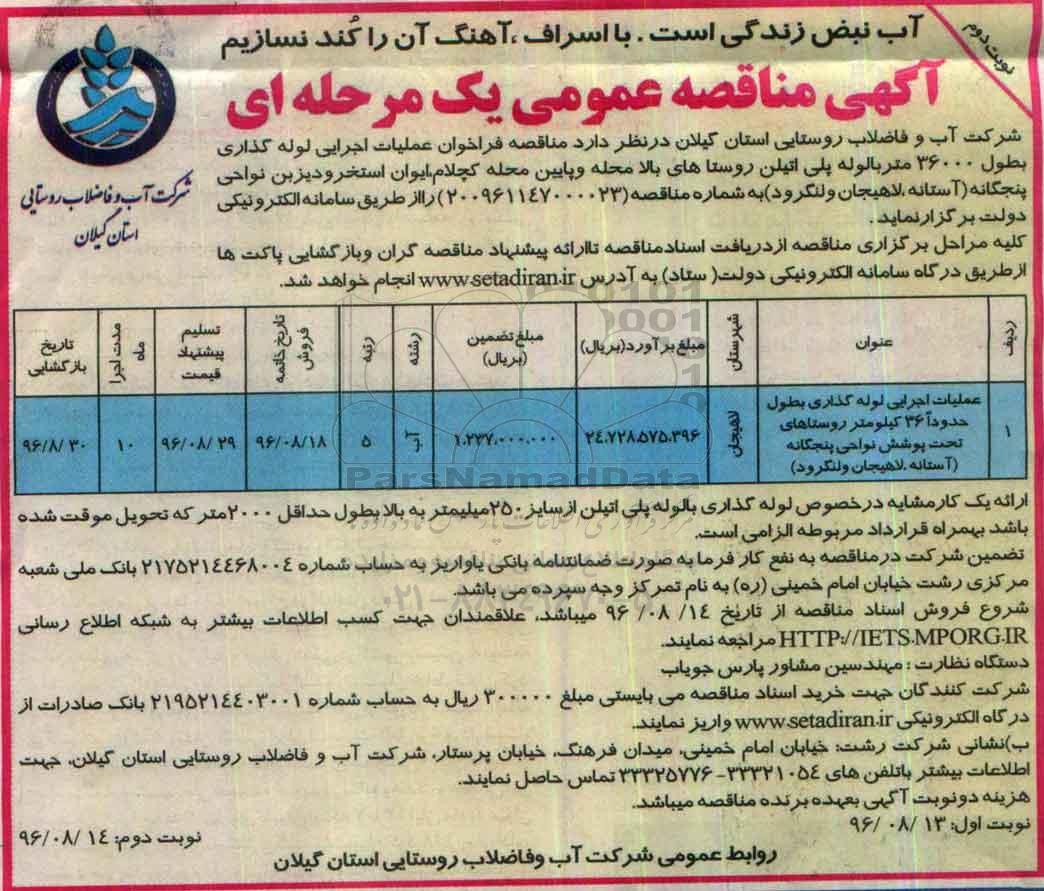 آب نبض زندگی است . با اسراف ،آهنگ آن را کُند نسازیم
نوبت دوم
آگهی مناقصه عمومی یک مرحله ای
شرکت آب و فاضلاب روستایی
استان گیلان
شرکت آب و فاضلاب روستایی استان گیلان درنظر دارد مناقصه فراخوان عملیات اجرایی لوله گذاری
بطول ۳۶۰۰۰ متربالوله پلی اتیلن روستا های بالا محله وپایین محله کجلام،ایوان استخرودیزبن نواحی
پنجگانه(آستانه ،لاهیجان ولنگرود)به شماره مناقصه (۲۰۰۹۶۱۱۴۷۰۰۰۰۲۳) رااز طریق سامانه الکترونیکی
دولت برگزارنماید .
کلیه مراحل برگزاری مناقصه ازدریافت اسنادمناقصه تاارائه پیشنهاد مناقصه گران وبازگشایی پاکت ها
ازطریق درگاه سامانه الکترونیکی دولت( ستاد) به آدرس www.setadiran.ir انجام خواهد شد.
ردیف	عنوان	شهرستان	مبلغ برآورد(بریال)	مبلغ تضمین (بریال)	رشته	رتبه	تاریخ خاتمه فروش	تسلیم پیشنهاد قیمت	مدت اجرا ماه	تاریخ بازگشایی
۱	عملیات اجرایی لوله گذاری بطول حدوداً ۳۶ کیلومتر روستاهای تحت پوشش نواحی پنجگانه (آستانه .لاهیجان ولنگرود)	لاهیجان	۲۴،۷۲۸،۵۷۵،۳۹۶	۱.۲۳۷.۰۰۰.۰۰۰	آب	۵	۹۶/۰۸/۱۸	۹۶/۰۸/۲۹	۱۰	۹۶/۸/۳۰
ParsNamadData
ارائه یک کارمشابه درخصوص لوله گذاری بالوله پلی اتیلن ازسایز ۲۵۰میلیمتر به بالا بطول حداقل ۲۰۰۰متر که تحویل موقت شده
باشد بهمراه قرارداد مربوطه الزامی است.
تضمین شرکت درمناقصه به نفع کار فرما به صورت ضمانتنامه بانکی یاواریز به حساب شماره ۲۱۷۵۲۱۴۴۶۸۰۰۴ بانک ملی شعبه
مرکزی رشت خیابان امام خمینی (ره) به نام تمرکز وجه سپرده می باشد.
شروع فروش اسناد مناقصه از تاریخ ۱۴/ ۰۸/ ۹۶ میباشد، علاقمندان جهت کسب اطلاعات بیشتر به شبکه اطلاع رسانی
HTTP://IETS.MPORG.IR مراجعه نمایند.
دستگاه نظارت : مهندسین مشاور پارس جویاب
شرکت کنندگان جهت خرید اسناد مناقصه می بایستی مبلغ ۳۰۰۰۰۰ ریال به حساب شماره ۲۱۹۵۲۱۴۴۰۳۰۰۱ بانک صادرات از
درگاه الکترونیکی www.setadiran.ir واریز نمایند.
ب)نشانی شرکت رشت: خیابان امام خمینی، میدان فرهنگ، خیابان پرستار، شرکت آب و فاضلاب روستایی استان گیلان، جهت
اطلاعات بیشتر باتلفن های ۳۳۳۲۱۰۵۴- ۳۳۳۲۵۷۷۶ تماس حاصل نمایند.
هزینه دونوبت آگهی بعهده برنده مناقصه میباشد.
نوبت اول: ۱۳ /۰۸ /۹۶
نوبت دوم: ۱۴ /۹۶/۰۸
روابط عمومی شرکت آب وفاضلاب روستایی استان گیلان